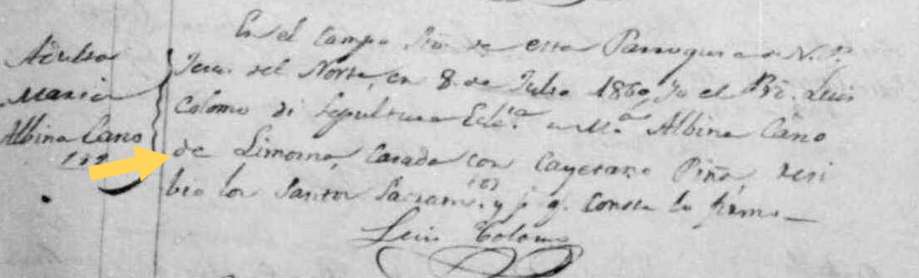 En el Campo Sto. de esta Parroquia de N. P.
Adulta
Jesus del Norte, en 8. de Julio 1860, Yo el Pro. Luis
Maria
Colomo di Sepultura Ecle.ª a M.ª Albina Cano
Albina Cano
de Limosna, Casada con Cayetano Piña, resi
bio los Santos Sacram.tos y p. q. Conste lo firmo
Luis Colomo